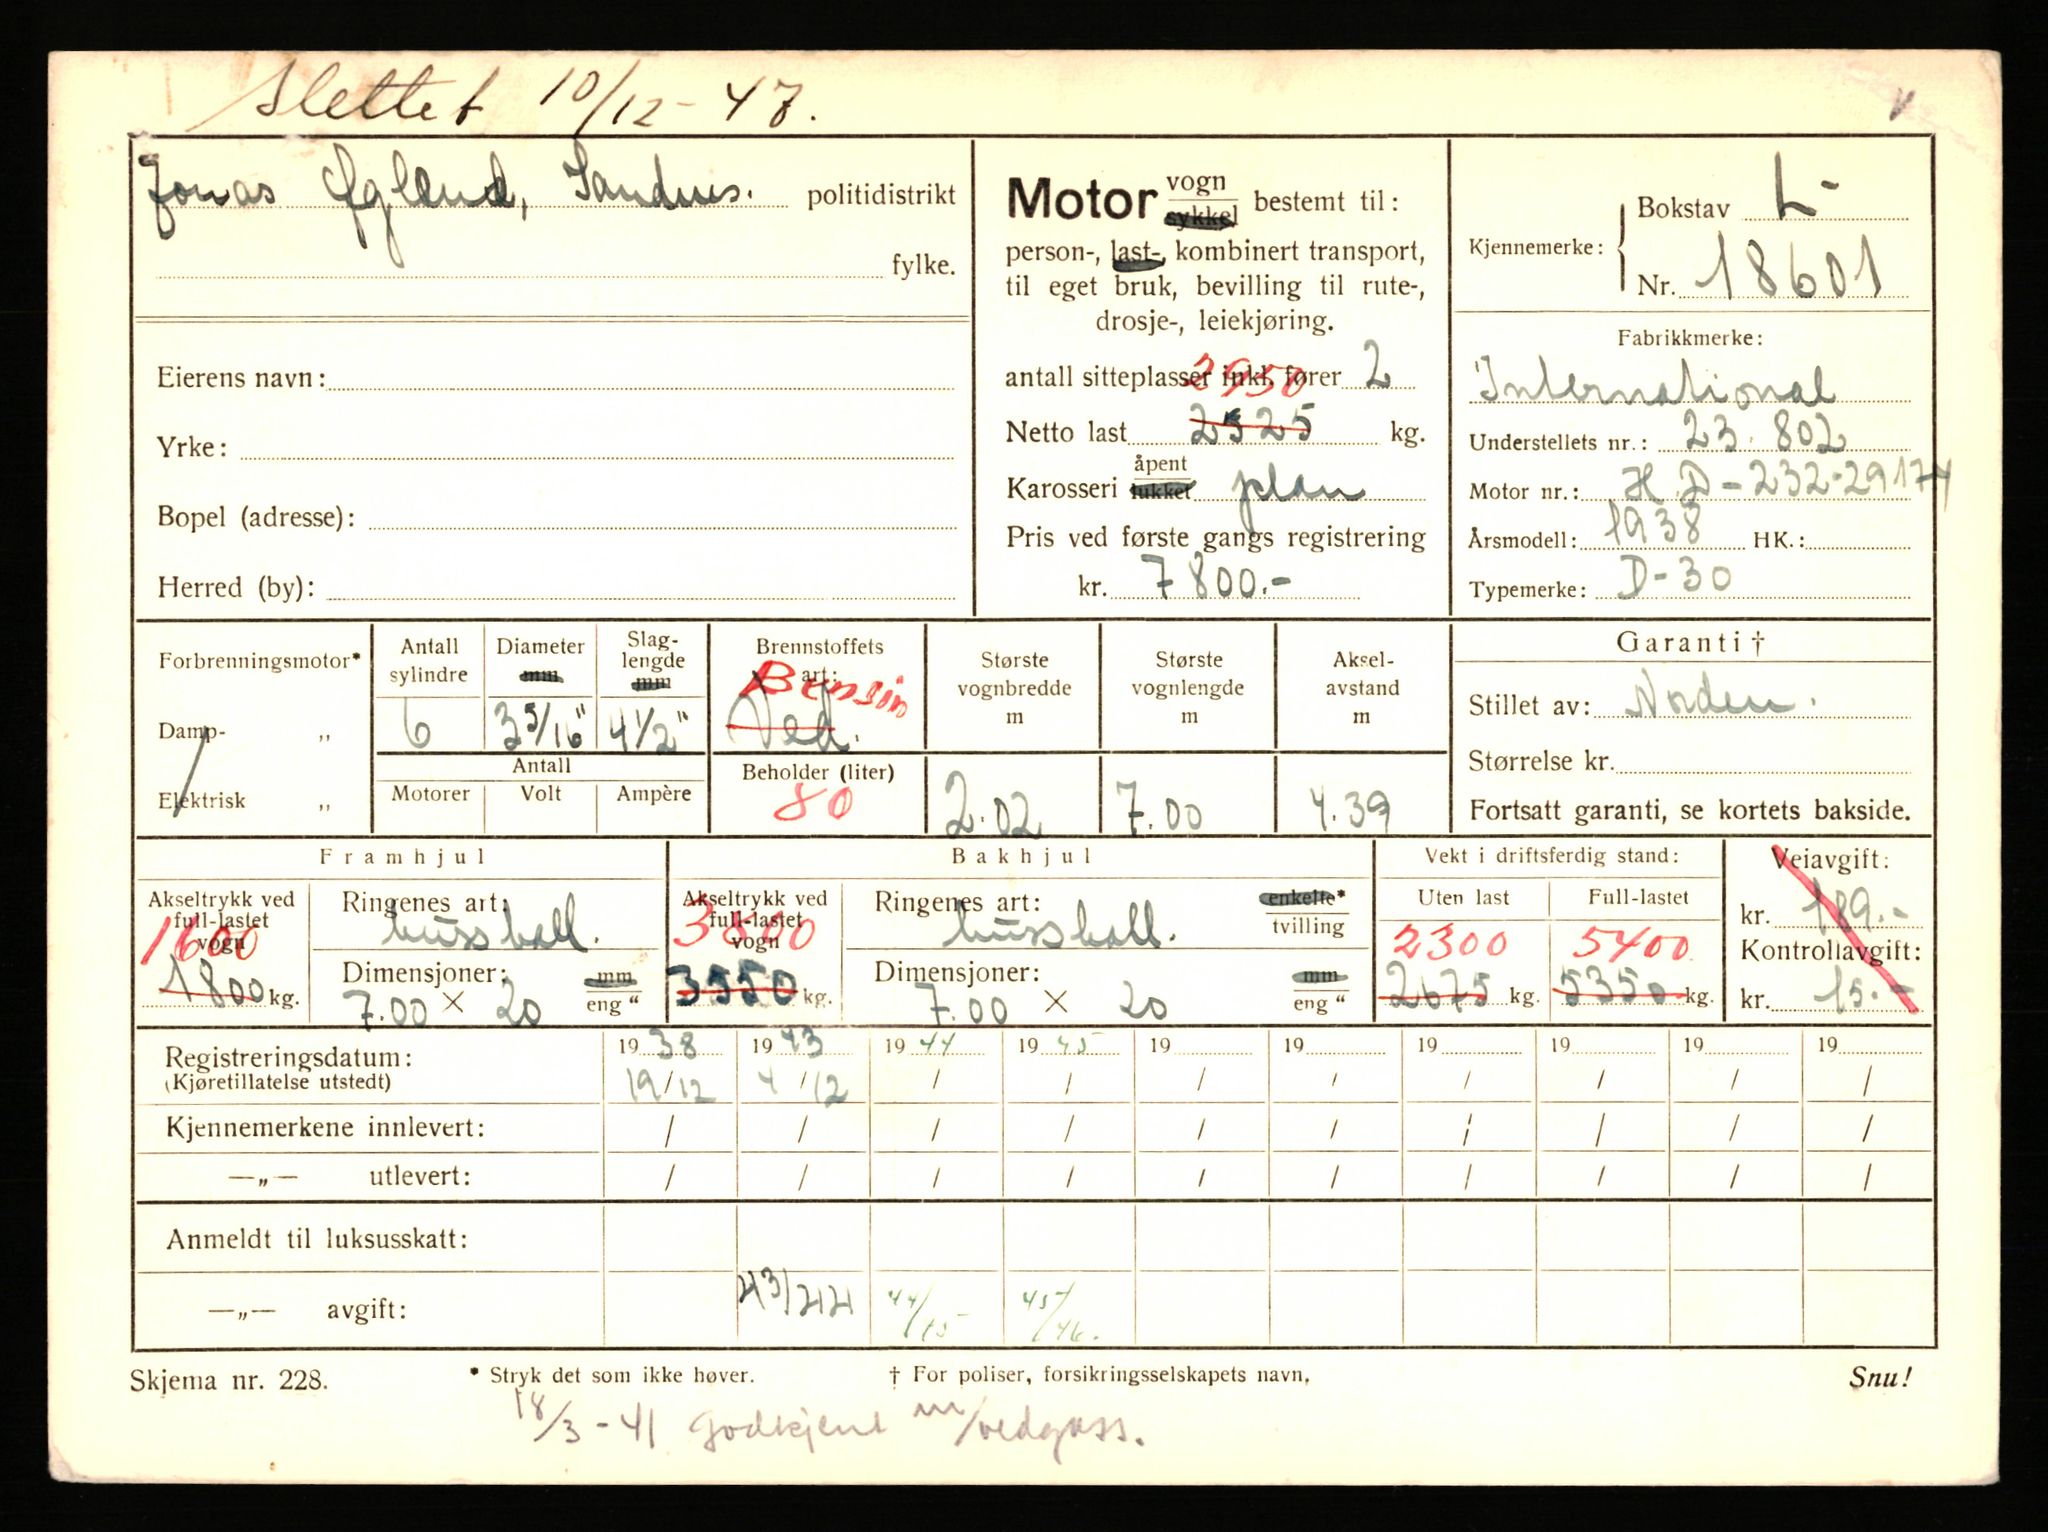 Slettet 10/12-47.
Jonas Øgland, Sandnes. politidistrikt
fylke.
Eierens navn:
Yrke:
Bopel (adresse):
Herred (by):
Motor vogn
sykkel bestemt til:
person-, last-, kombinert transport,
til eget bruk, bevilling til rute-,
drosje-, leiekjøring.
antall sitteplasser inkl. fører 2
2950
Netto last 2525 kg.
Karosseri åpent
lukket plan
Pris ved første gangs registrering
kr. 7800.-
Bokstav L-
Kjennemerke:
Nr. 18601
Fabrikkmerke:
International
Understellets nr.: 23.802
Motor nr.: H.D-232-29174
Årsmodell: 1938 HK.:
Typemerke: D-30
Forbrenningsmotor*
Damp- „
Elektrisk „
Antall sylindre
6
Diameter mm
3 5/16"
Slaglengde mm
4 1/2"
Antall
Motorer Volt Ampère
Brennstoffets art:
Bensin
Ved.
Beholder (liter)
80
Største vognbredde m
2.02
Største vognlengde m
7.00
Akselavstand m
4.39
Garanti †
Stillet av: Norden.
Størrelse kr.
Fortsatt garanti, se kortets bakside.
Framhjul
Akseltrykk ved
full-lastet
vogn
1600
1800 kg.
Ringenes art:
luss ball.
Dimensjoner: mm
7.00 × 20 eng "
Bakhjul
Akseltrykk ved
full-lastet
vogn
3800
3550 kg.
Ringenes art: enkelte*
luss ball. tvilling
Dimensjoner: mm
7.00 × 20 eng "
Vekt i driftsferdig stand:
Uten last Full-lastet
2300 5400
2675 kg. 5350 kg.
Veiavgift:
kr. 189.-
Kontrollavgift:
kr. 15.-
Registreringsdatum: 1938 1943 1944 1945 19 19 19 19 19 19
(Kjøretillatelse utstedt) 19/12 4/12 / / / / / / / /
Kjennemerkene innlevert: / / / / / / / / / /
—„— utlevert: / / / / / / / / / /
Anmeldt til luksusskatt:
—„— avgift: 43/44 44/45 45/46.
Skjema nr. 228. * Stryk det som ikke høver. † For poliser, forsikringsselskapets navn. Snu!
18/3-41 Godkjent m/vedgass.